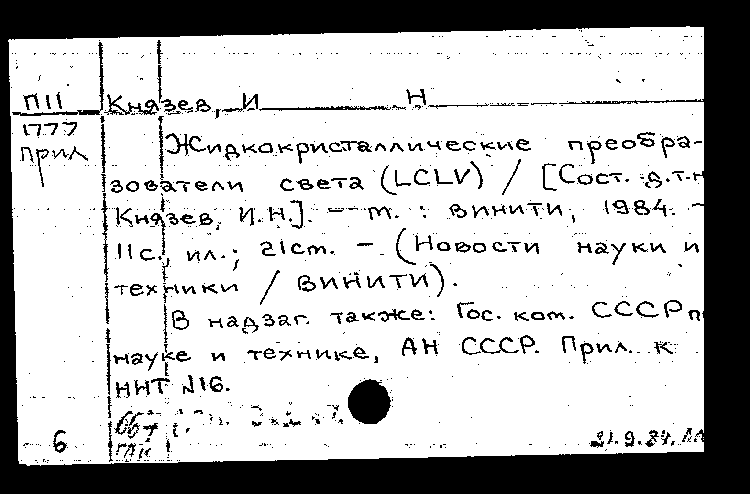 П11 Князев, И Н
1777
прил
Жидкокристаллические преобра-
зователи света (LCLV) / [Сост. д.т.н
Князев, И.Н.]. — т. : винити, 1984. —
11с., ил.; 21ст. — (Новости науки и
техники / ВИНИТИ).
В надзаг. также: Гос. ком. СССР п
науке и технике, АН СССР. Прил. к
ННТ №16.
667
6 21.9.84.